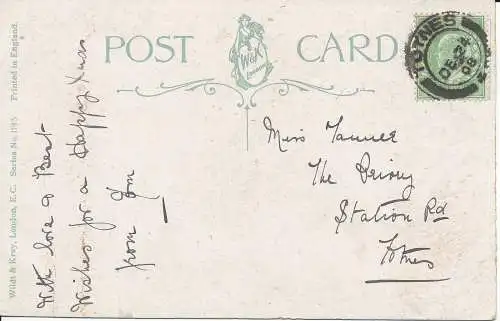 POST CARD
W&K
London
TOTNES
DE 24
08
Miss Tanner
The Priory
Station Rd
Totnes
With love & Best
Wishes for a Happy Xmas
from
Wildt & Kray, London, E.C. Series No. 1195 Printed in England.